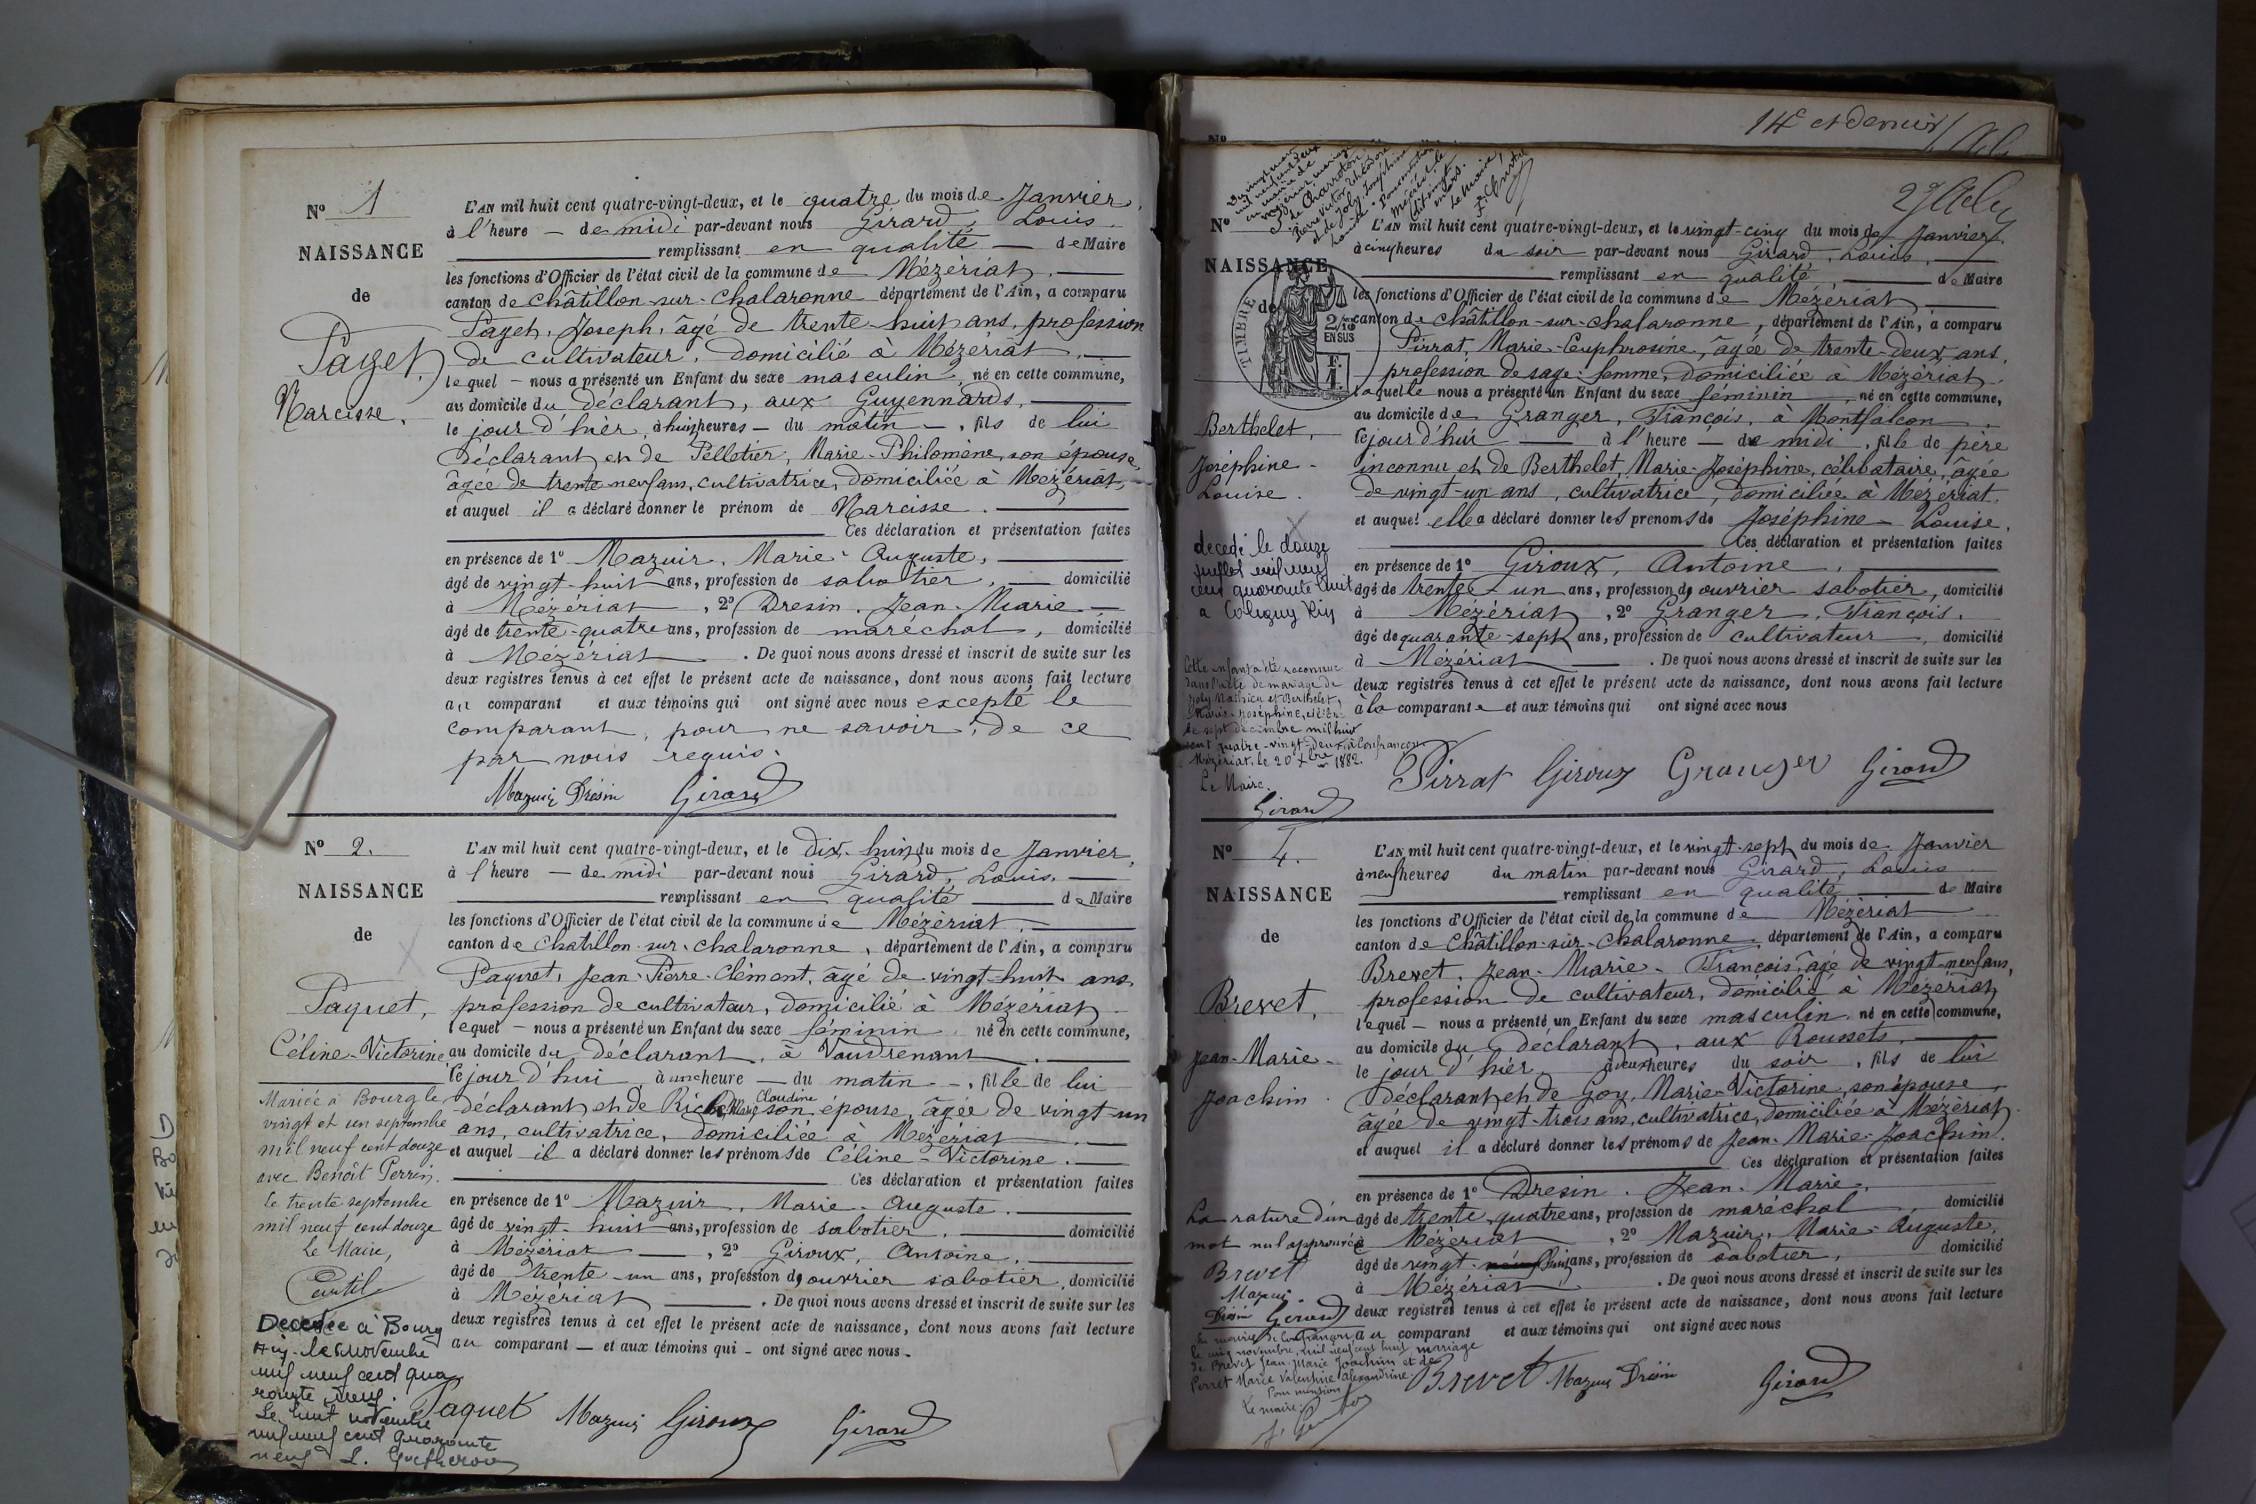 N° 1
NAISSANCE
de
Paget,
Narcisse.
L'AN mil huit cent quatre-vingt-deux, et le quatre du mois de Janvier,
à l'heure — de midi par-devant nous Girard, Louis.
remplissant en qualité — de Maire
les fonctions d'Officier de l'état civil de la commune de Mézériat.
canton de Châtillon-sur-Chalaronne département de l'Ain, a comparu
Paget, Joseph, âgé de trente-huit ans, profession
de cultivateur, domicilié à Mézériat.
lequel — nous a présenté un Enfant du sexe masculin, né en cette commune,
au domicile du déclarant, aux Guyennards,
le jour d'hier, à huit heures — du matin —, fils de lui
déclarant et de Pelletier, Marie-Philomène, son épouse,
âgée de trente neuf ans, cultivatrice, domiciliée à Mézériat,
et auquel il a déclaré donner le prénom de Narcisse.
Ces déclaration et présentation faites
en présence de 1° Mazuir, Marie-Auguste,
âgé de vingt-huit ans, profession de sabotier, domicilié
à Mézériat, 2° Dresin, Jean-Marie
âgé de trente-quatre ans, profession de maréchal, domicilié
à Mézériat. De quoi nous avons dressé et inscrit de suite sur les
deux registres tenus à cet effet le présent acte de naissance, dont nous avons fait lecture
au comparant et aux témoins qui ont signé avec nous excepté le
comparant, pour ne savoir, de ce
par nous requis.
Mazuir Dresin Girard
N° 2.
NAISSANCE
de
Paquet,
Céline-Victorine
L'AN mil huit cent quatre-vingt-deux, et le dix-huit du mois de Janvier,
à l'heure — de midi par-devant nous Girard, Louis.
remplissant en qualité de Maire
les fonctions d'Officier de l'état civil de la commune de Mézériat.
canton de Chatillon-sur-Chalaronne, département de l'Ain, a comparu
Paquet, Jean-Pierre-Clément, âgé de vingt-huit ans,
profession de cultivateur, domicilié à Mézériat.
lequel — nous a présenté un Enfant du sexe féminin né en cette commune,
au domicile du déclarant, à Vaudrenant.
le jour d'hui, à une heure — du matin —, fille de lui
déclarant et de Marie Claudine son épouse, âgée de vingt-un
ans, cultivatrice, domiciliée à Mézériat.
et auquel il a déclaré donner les prénoms de Céline-Victorine.
Ces déclaration et présentation faites
en présence de 1° Mazuir, Marie-Auguste.
âgé de vingt-huit ans, profession de sabotier, domicilié
à Mézériat, 2° Giroux, Antoine,
âgé de trente-un ans, profession d'ouvrier sabotier, domicilié
à Mézériat. De quoi nous avons dressé et inscrit de suite sur les
deux registres tenus à cet effet le présent acte de naissance, dont nous avons fait lecture
au comparant — et aux témoins qui - ont signé avec nous.
Paquet Mazuir Giroux Girard
Mariée à Bourg le
vingt et un septembre
mil neuf cent douze
avec Benoît Perrin.
Le trente septembre
mil neuf cent douze
Le Maire,
Décédée à Bourg
Ain le novembre
mil neuf cent qua
rante neuf.
Le huit novembre
mil neuf cent quarante
neuf
14e et dernier
2e
N°
NAISSANCE
de
TIMBRE
2/10
EN SUS
Berthelet,
Joséphine-
Louise.
L'AN mil huit cent quatre-vingt-deux, et le vingt-cinq du mois de Janvier,
à cinq heures du soir par-devant nous Girard, Louis,
remplissant en qualité de Maire
les fonctions d'Officier de l'état civil de la commune de Mézériat
canton de Châtillon-sur-Chalaronne, département de l'Ain, a comparu
Pirrat, Marie-Euphrosine, âgée de trente-deux ans,
profession de sage-femme, domiciliée à Mézériat.
laquelle nous a présenté un Enfant du sexe féminin, né en cette commune,
au domicile de Granger, François, à Montfalcon,
le jour d'hui — à l'heure — de midi, fille de père
inconnu et de Berthelet, Marie-Joséphine, célibataire, âgée
de vingt-un ans, cultivatrice, domiciliée à Mézériat.
et auquel elle a déclaré donner les prénoms de Joséphine-Louise.
Ces déclaration et présentation faites
en présence de 1° Giroux, Antoine,
âgé de trente-un ans, profession d'ouvrier sabotier, domicilié
à Mézériat, 2° Granger, François.
âgé de quarante-sept ans, profession de cultivateur, domicilié
à Mézériat. De quoi nous avons dressé et inscrit de suite sur les
deux registres tenus à cet effet le présent acte de naissance, dont nous avons fait lecture
à la comparante et aux témoins qui ont signé avec nous
Pirrat Giroux Granger Girard
décédé le douze
juillet mil neuf
cent quarante huit
à Coligny Ain
Cette enfant a été reconnue
dans l'acte de mariage de
Joly Mathieu et Berthelet,
Marie-Joséphine,
le sept décembre mil huit
cent quatre-vingt-deux, à Confrançon.
Mézériat, le 20 Xbre 1882.
Le Maire.
Girard
N° 4.
NAISSANCE
de
Brevet,
Jean-Marie-
Joachim.
L'AN mil huit cent quatre-vingt-deux, et le vingt-sept du mois de Janvier
à neuf heures du matin par-devant nous Girard, Louis
remplissant en qualité de Maire
les fonctions d'Officier de l'état civil de la commune de Mézériat
canton de Châtillon-sur-Chalaronne, département de l'Ain, a comparu
Brevet, Jean-Marie-François, âgé de vingt-neuf ans,
profession de cultivateur, domicilié à Mézériat
lequel — nous a présenté un Enfant du sexe masculin, né en cette commune,
au domicile du déclarant, aux Roussets,
le jour d'hier, à deux heures du soir, fils de lui
déclarant et de Goy, Marie-Victorine, son épouse,
âgée de vingt-trois ans, cultivatrice, domiciliée à Mézériat.
et auquel il a déclaré donner les prénoms de Jean-Marie-Joachim.
Ces déclaration et présentation faites
en présence de 1° Dresin, Jean-Marie,
âgé de trente-quatre ans, profession de maréchal domicilié
à Mézériat, 2° Mazuir, Marie-Auguste,
âgé de vingt-huit ans, profession de sabotier, domicilié
à Mézériat. De quoi nous avons dressé et inscrit de suite sur les
deux registres tenus à cet effet le présent acte de naissance, dont nous avons fait lecture
au comparant et aux témoins qui ont signé avec nous
Brevet Mazuir Dresin Girard
La rature d'un
mot nul approuvée
Brevet
Mazuir
Dresin Girard
En mairie de Confrançon,
le cinq novembre, mil neuf cent huit mariage
de Brevet Jean-Marie Joachim et de
Perret Marie Valentine Alexandrine.
Pour mention
Le maire.